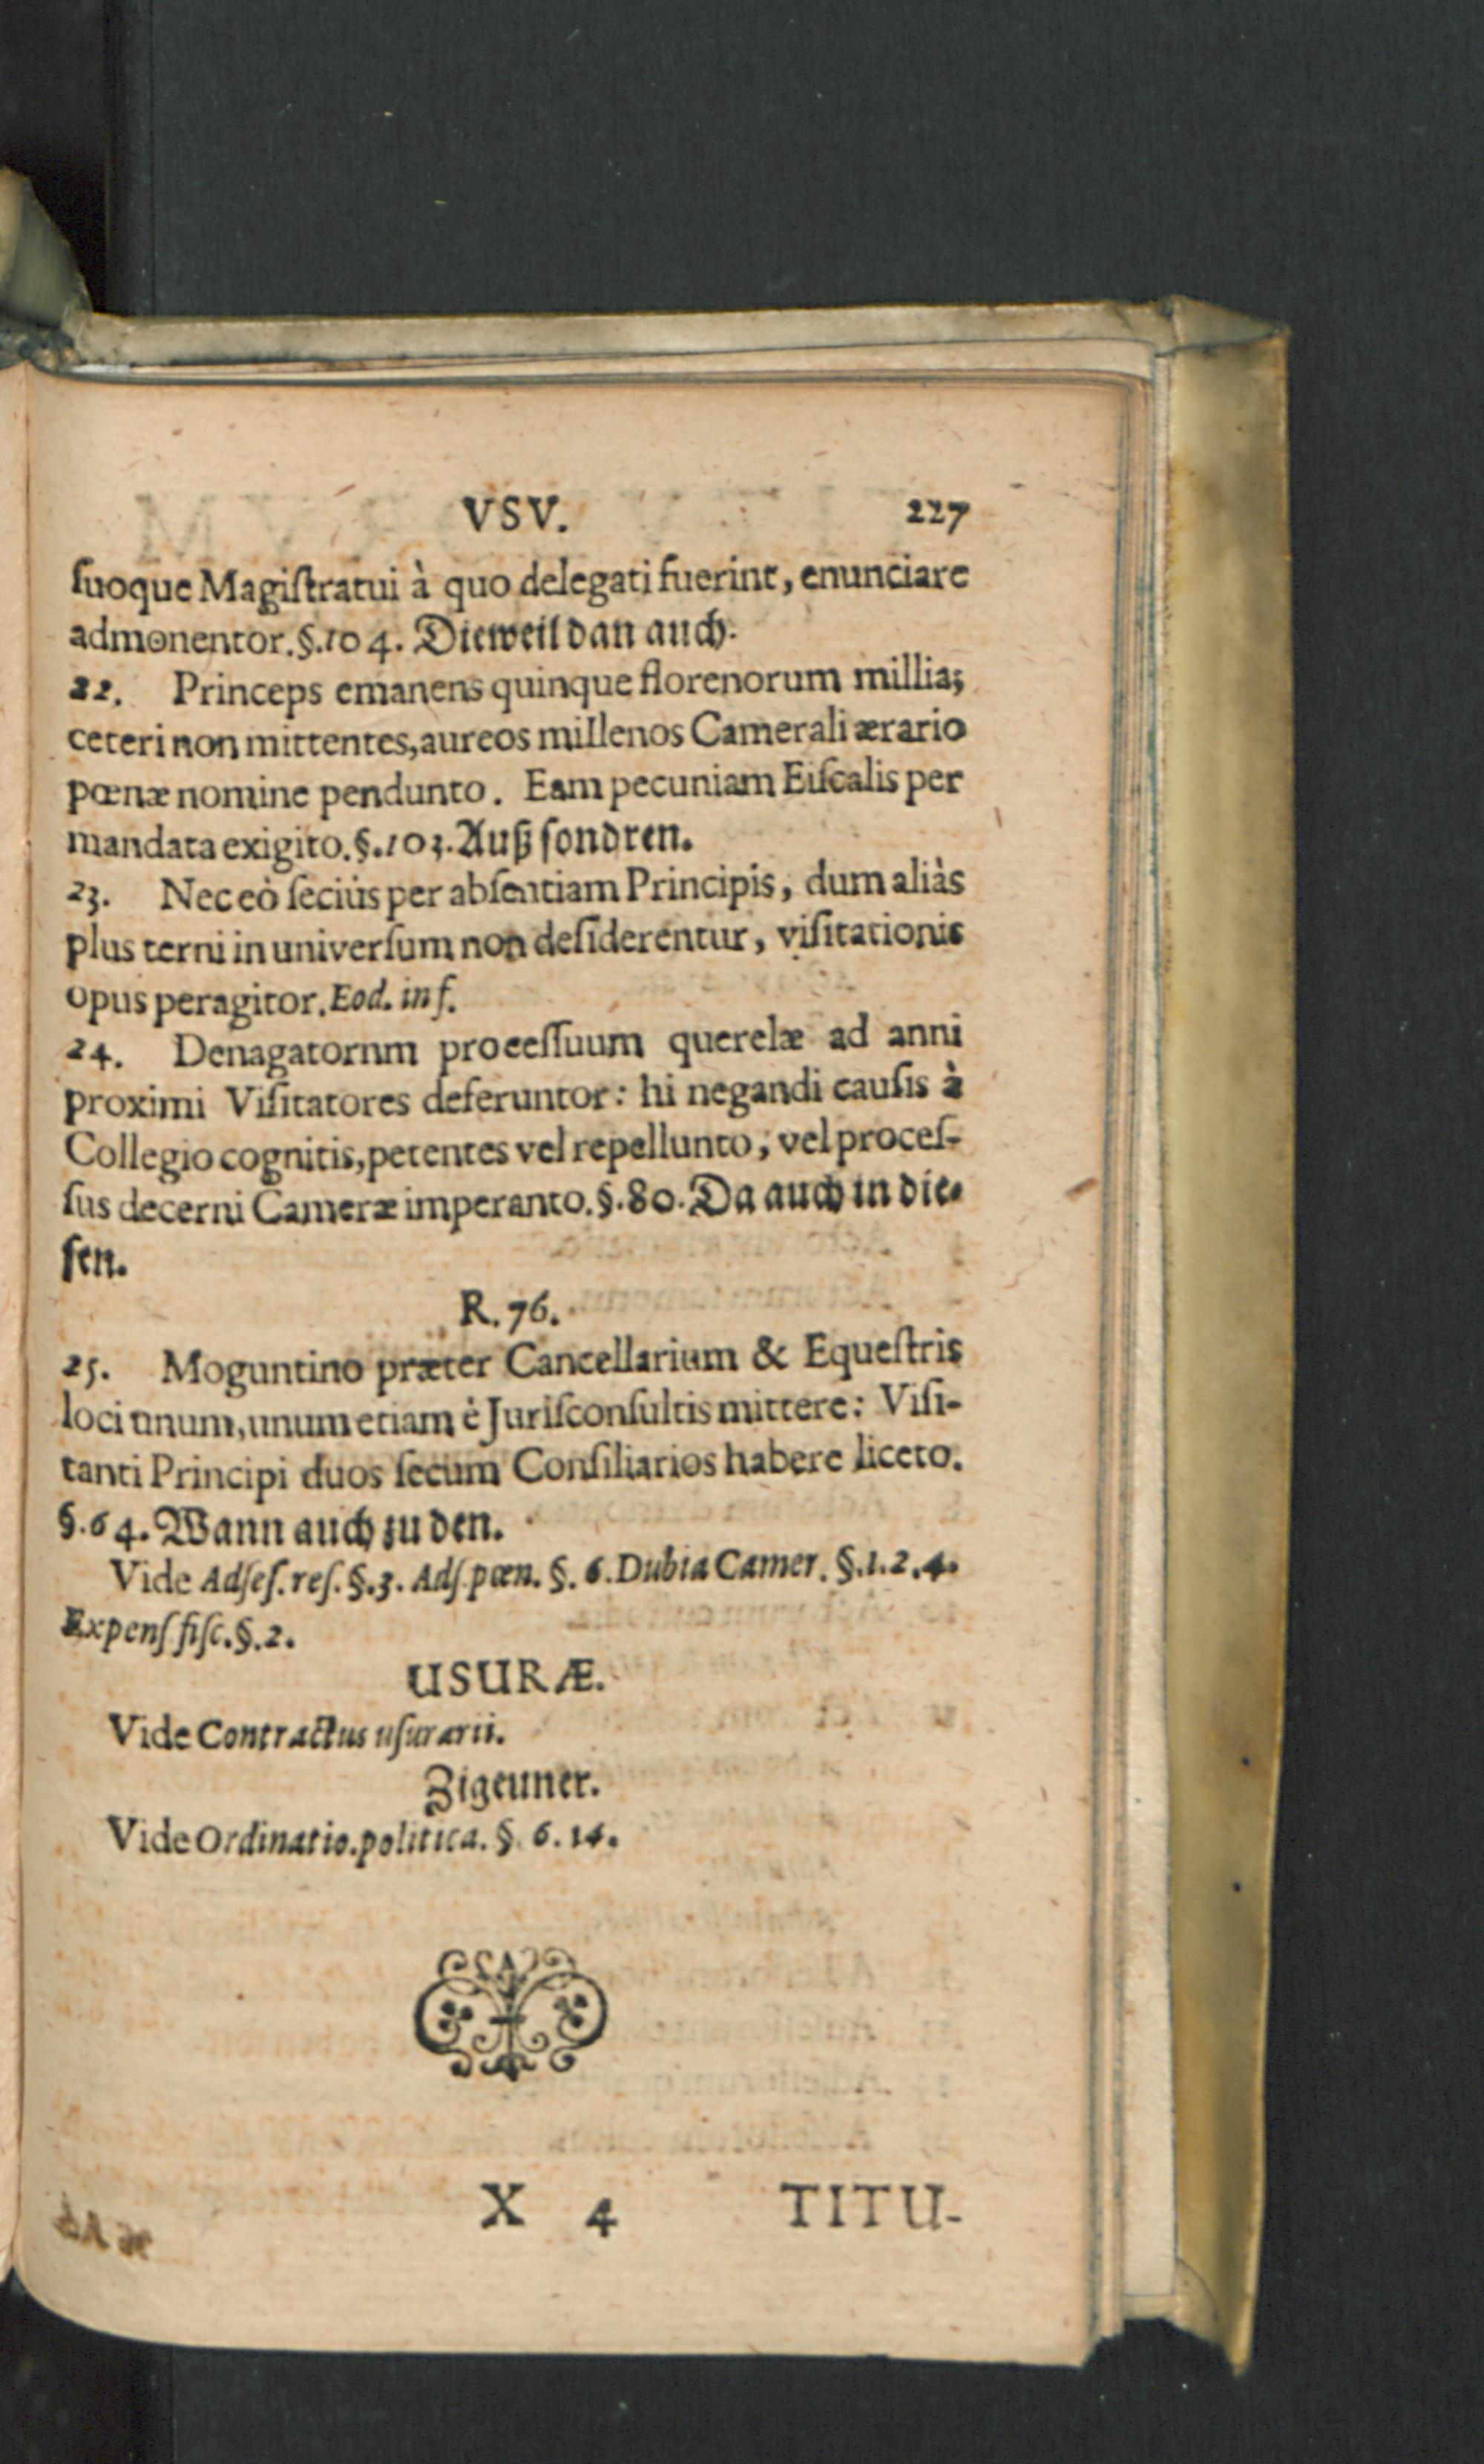 VSV. 227
ſuoque Magiſtratui à quo delegati fuerint, enunciare
admonentor. §. 104. Dieweil dan auch.
22. Princeps emanens quinque florenorum millia;
ceteri non mittentes, aureos millenos Camerali ærario
pœnæ nomine pendunto. Eam pecuniam Eiſcalis per
mandata exigito. §. 103. Auß ſondren.
23. Nec eò ſeciùs per abſentiam Principis, dum aliàs
plus terni in univerſum non deſiderentur, viſitationis
opus peragitor. Eod. in f.
24. Denagatornm proeeſſuum querelæ ad anni
proximi Viſitatores deferuntor: hi negandi cauſis à
Collegio cognitis, petentes vel repellunto, vel proceſ-
ſus decerni Cameræ imperanto. §. 80. Da auch in die-
ſen.
R. 76.
25. Moguntino præter Cancellarium & Equeſtris
loci unum, unum etiam è Juriſconſultis mittere: Viſi-
tanti Principi duos ſecum Conſiliarios habere liceto.
§. 64. Wann auch zu den.
Vide Adſeſ. reſ. §. 3. Adſ. pœn. §. 6. Dubia Camer. §. 1. 2. 4.
Expenſ fiſc. §. 2.
USURÆ.
Vide Contractus uſurarii.
Zigeuner.
Vide Ordinatio. politica. §. 6. 14.
X 4 TITU-